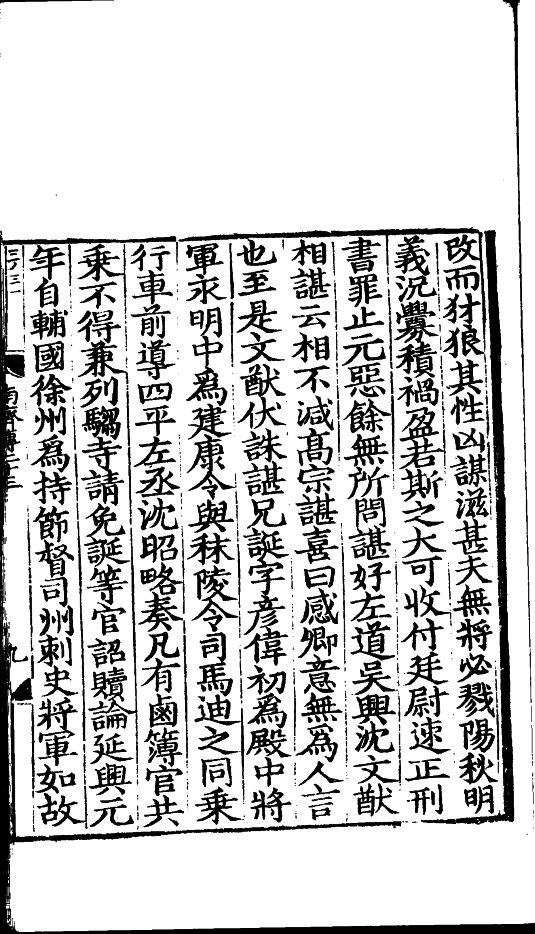 改而犲狼其性凶謀滋甚夫無將必戮陽秋明
義况釁積禍盈若斯之大可收付廷尉速正刑
書罪止元惡餘無所問諶好左道吳興沈文猷
相諶云相不減髙宗諶喜曰感卿意無爲人言
也至是文猷伏誅諶兄誕字彦偉初爲殿中將
軍永明中爲建康令與秣陵令司馬迪之同乗
行車前導四平左丞沈昭略奏凡有鹵簿官共
乗不得兼列騶寺請免誕等官詔贖論延興元
年自輔國徐州爲持節督司州刺史將軍如故
南齊傳二十三
九